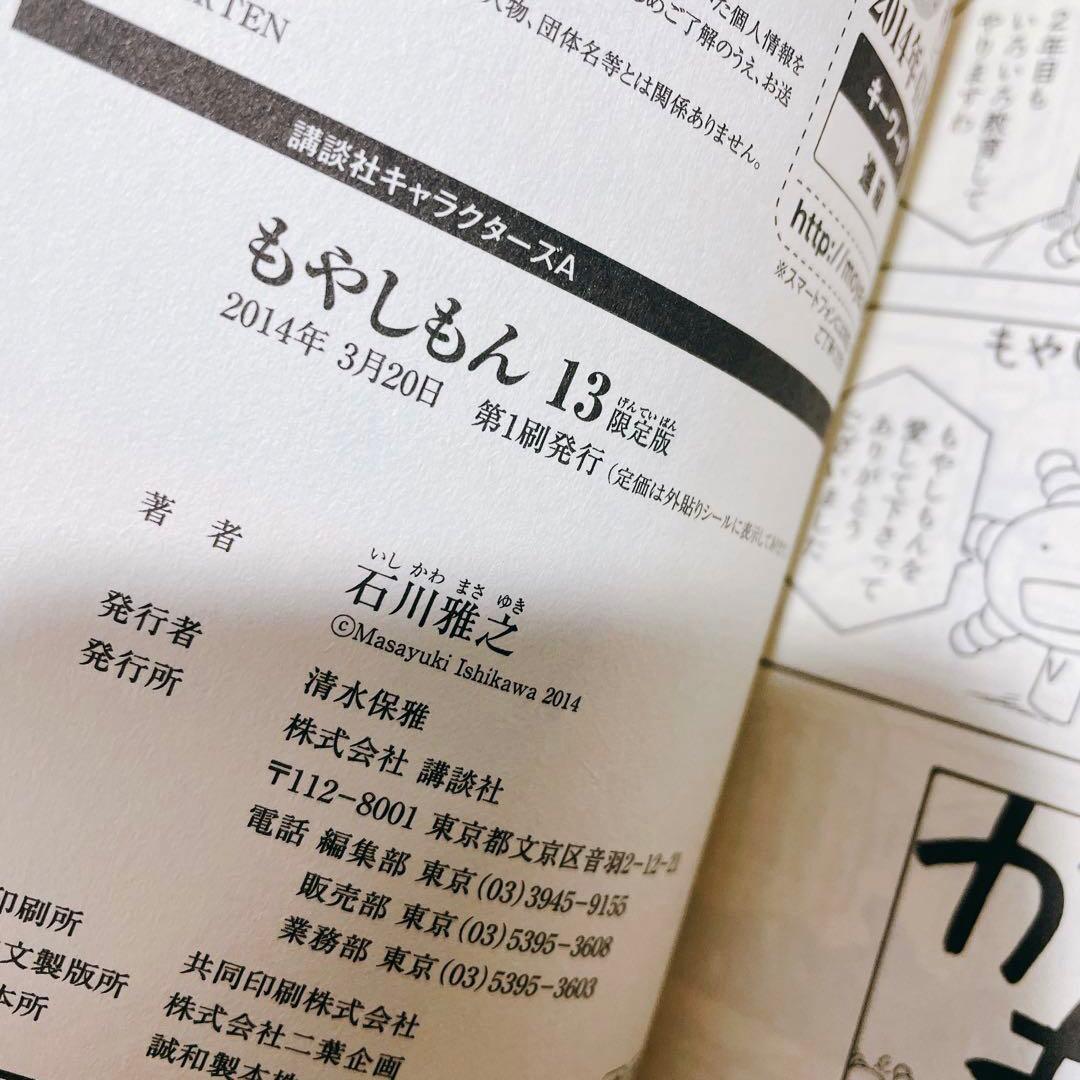 た個人情報を
めご了解のうえ、お送
人物、団体名等とは関係ありません。
RTEN
講談社キャラクターズA
もやしもん 13 限定版
げんていばん
2014年 3月20日 第1刷発行
(定価は外貼りシールに表示してあります
著 者
いし かわ まさ ゆき
石川雅之
©Masayuki Ishikawa 2014
発行者
清水保雅
発行所
株式会社 講談社
〒112-8001 東京都文京区音羽2-12-21
電話 編集部 東京(03)3945-9155
販売部 東京(03)5395-3608
業務部 東京(03)5395-3603
印刷所
共同印刷株式会社
文製版所
株式会社二葉企画
本所
誠和製本株
2014年
キーワー
http://moya
※スマートフォン
2年目も
いろいろ教育して
やりますわ
もやし
もやしもんを
愛して下さって
ありがとう
ございました
かも